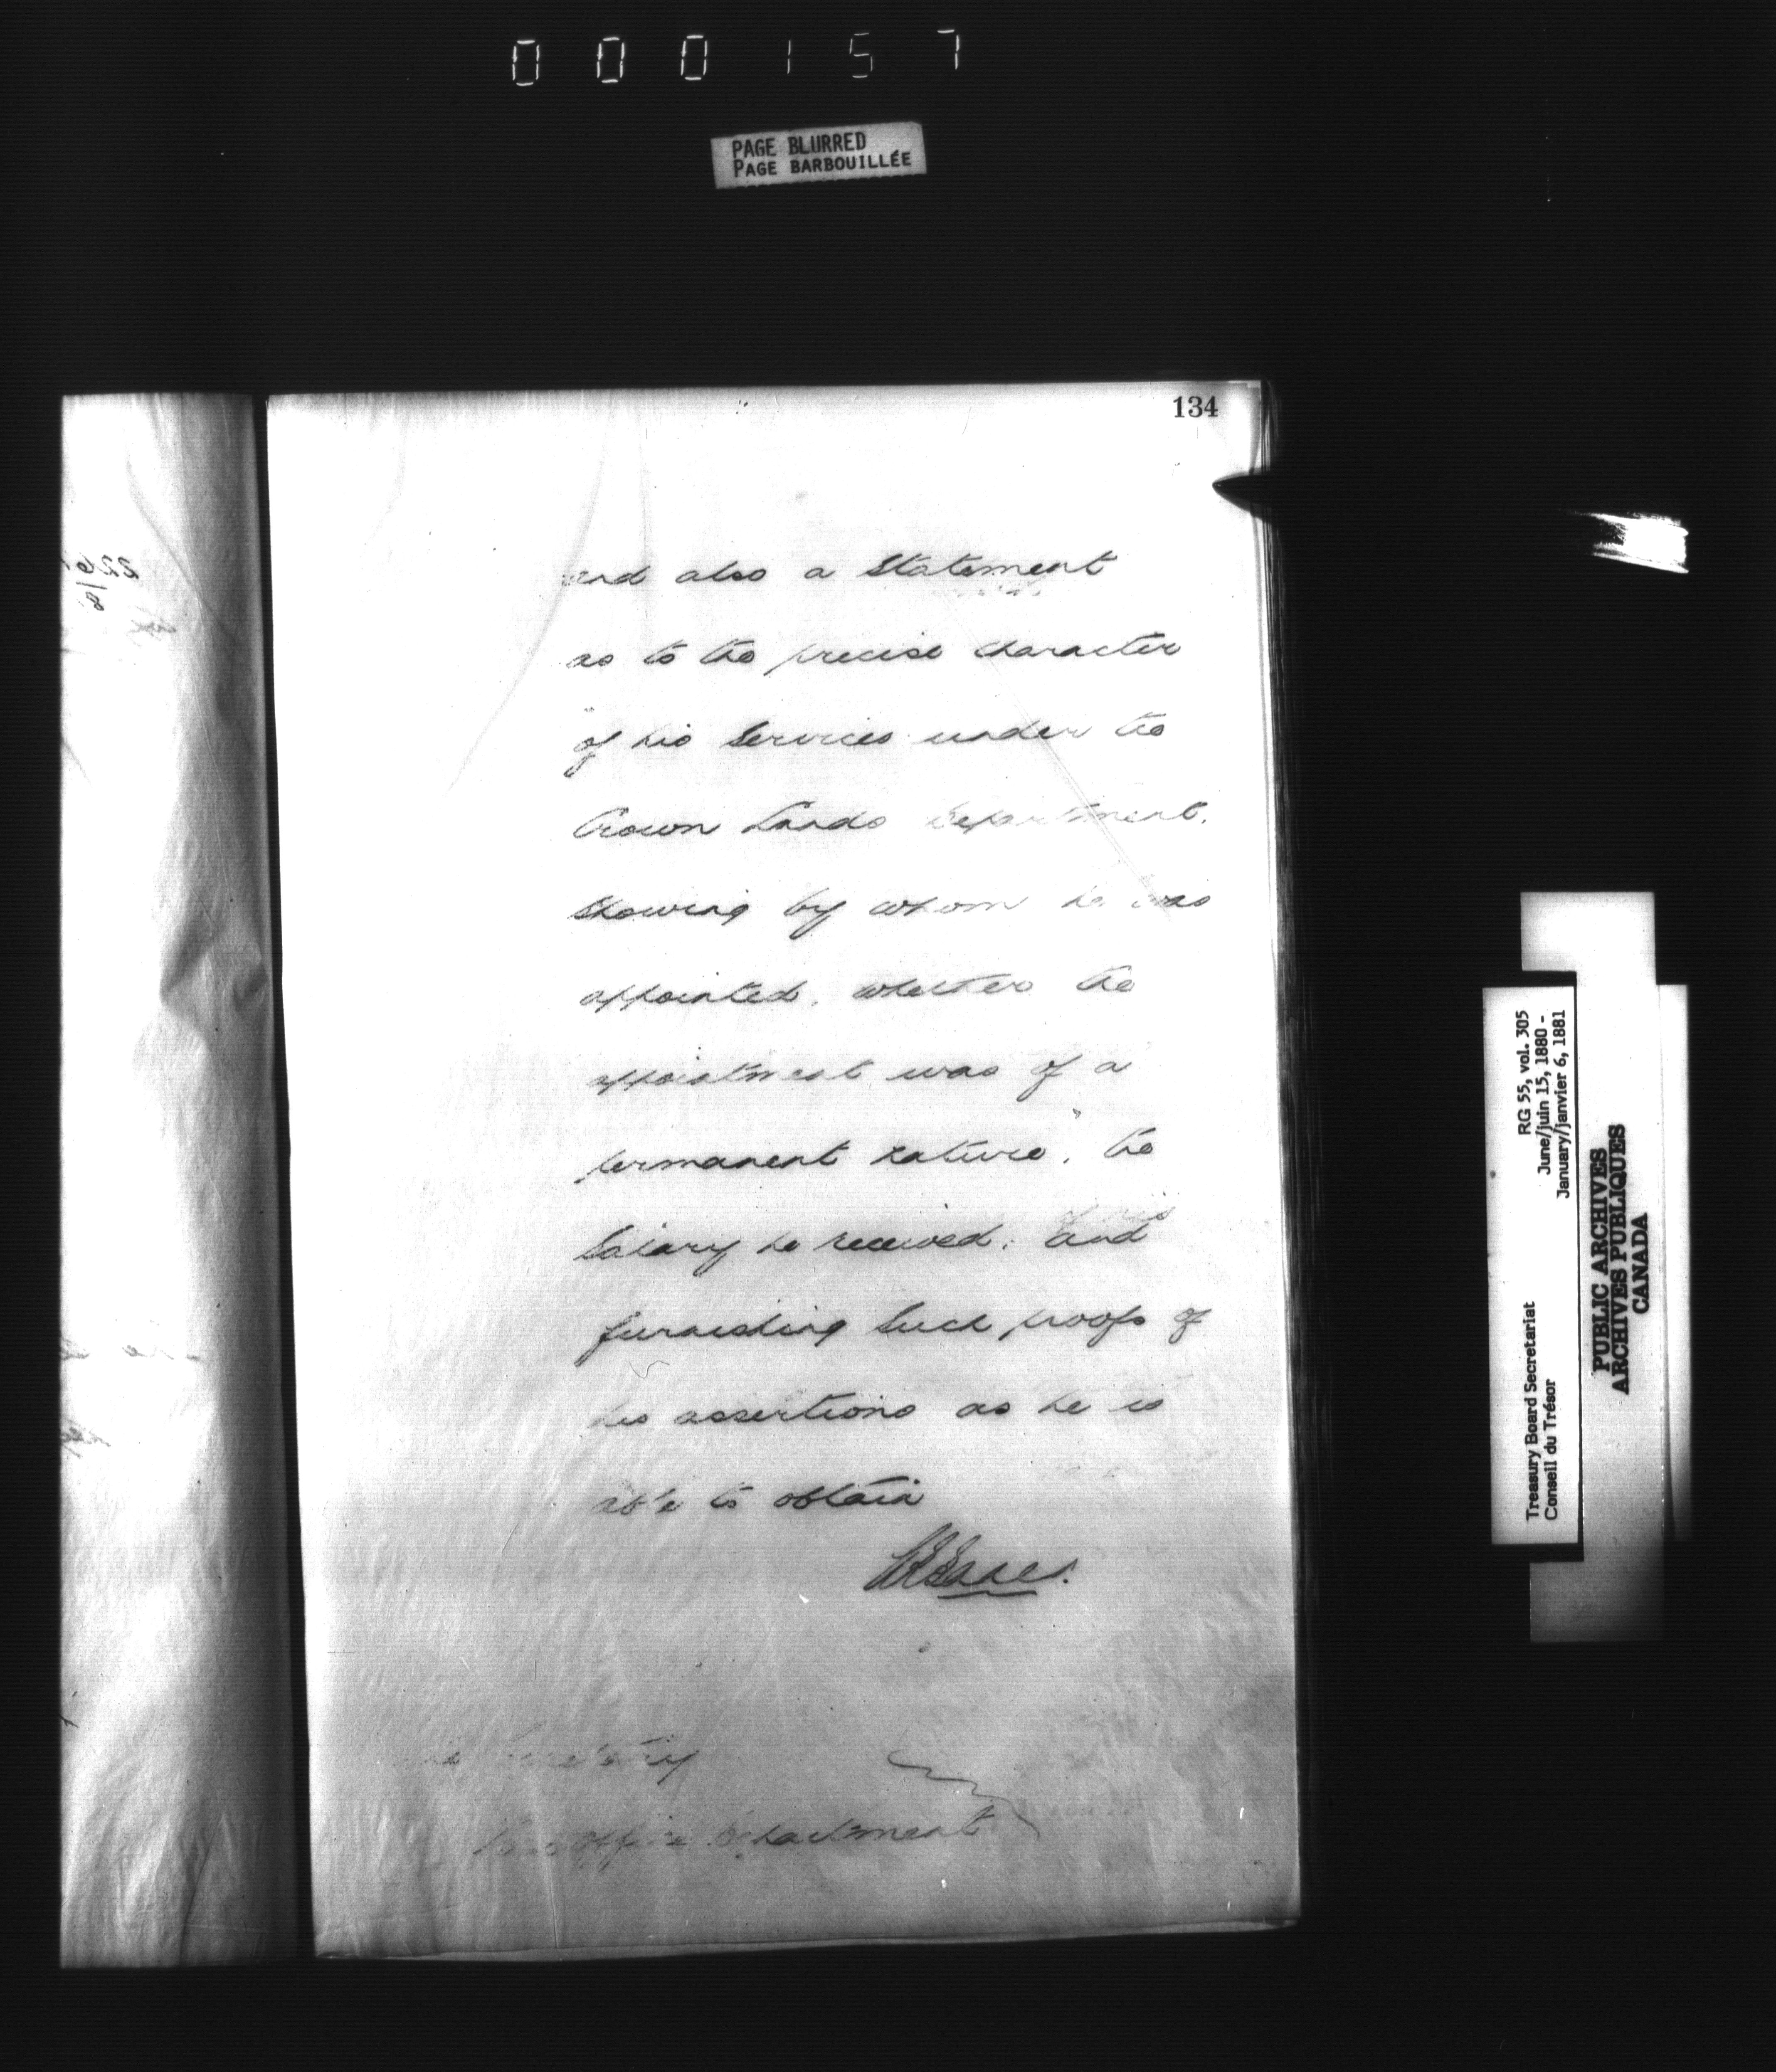 000157
PAGE BLURRED
PAGE BARBOUILLÉE
134
and also a Statement
as to the precise character
of his Services under the
Crown Lands Department,
Showing by whom he was
appointed, whether the
appointment was of a
permanent nature, the
Salary he received, and
furnishing Such proofs of
his assertions as he is
able to obtain
Secretary
Post Office Department
RG 55, vol. 305
June/juin 15, 1880 -
January/janvier 6, 1881
Treasury Board Secretariat
Conseil du Trésor
PUBLIC ARCHIVES
ARCHIVES PUBLIQUES
CANADA